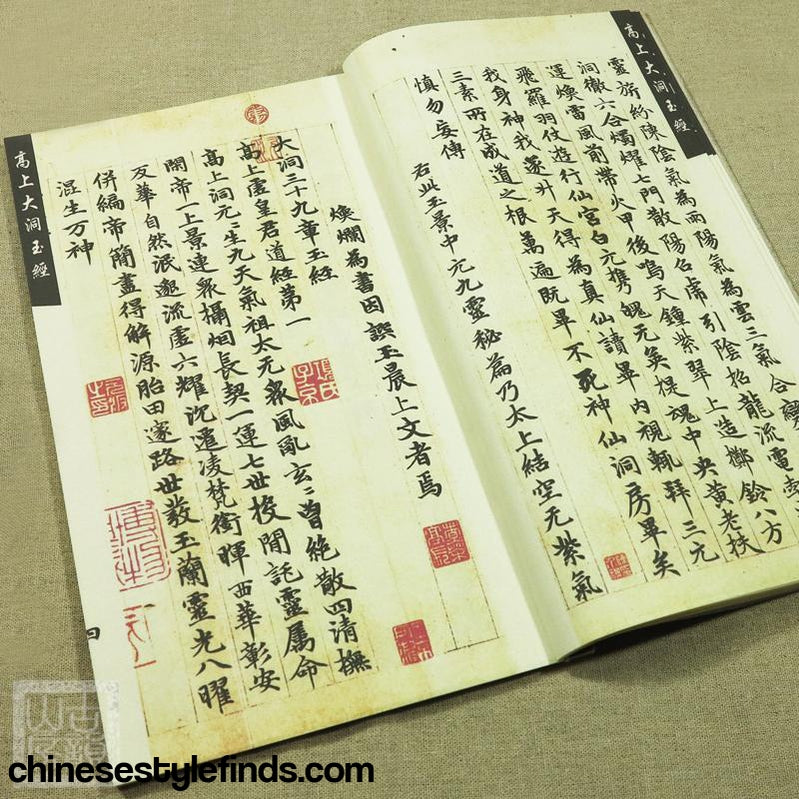 高上大洞玉經
靈旂紛陳陰氣為雨陽氣為雲三氣合變
洞徹六合燭耀七門散陽召虎引陰招龍流電
運煥雷風前帶火甲後鳴天鍾紫翠上造擲鈴八方
飛羅羽仗遊行仙宮白元携魄无英提魂中央黃老扶
我身神我遂升天得為真仙讀畢內視輒拜三元
三素所在成道之根萬遍既畢不死神仙洞房畢矣
慎勿妄傳
右此玉景中元九靈秘篇乃太上結空元紫氣
煥爛為書因誤玉晨上文者焉
大洞三十九章玉經
高上虛皇君道經第一
高上洞元〻生九天氣祖太元衆風亂玄〻曾絕散四清撫
開帝一上景連衆攝烟長契一運七世投閒託靈屬命
反華自然泯邈流盧六耀沉遣凌梵衛暉西華彰安
併編帝簡盡得解源胎田邃路世教玉蘭靈光八曜
混生万神
高上大洞玉經
四
chinesestylefinds.com